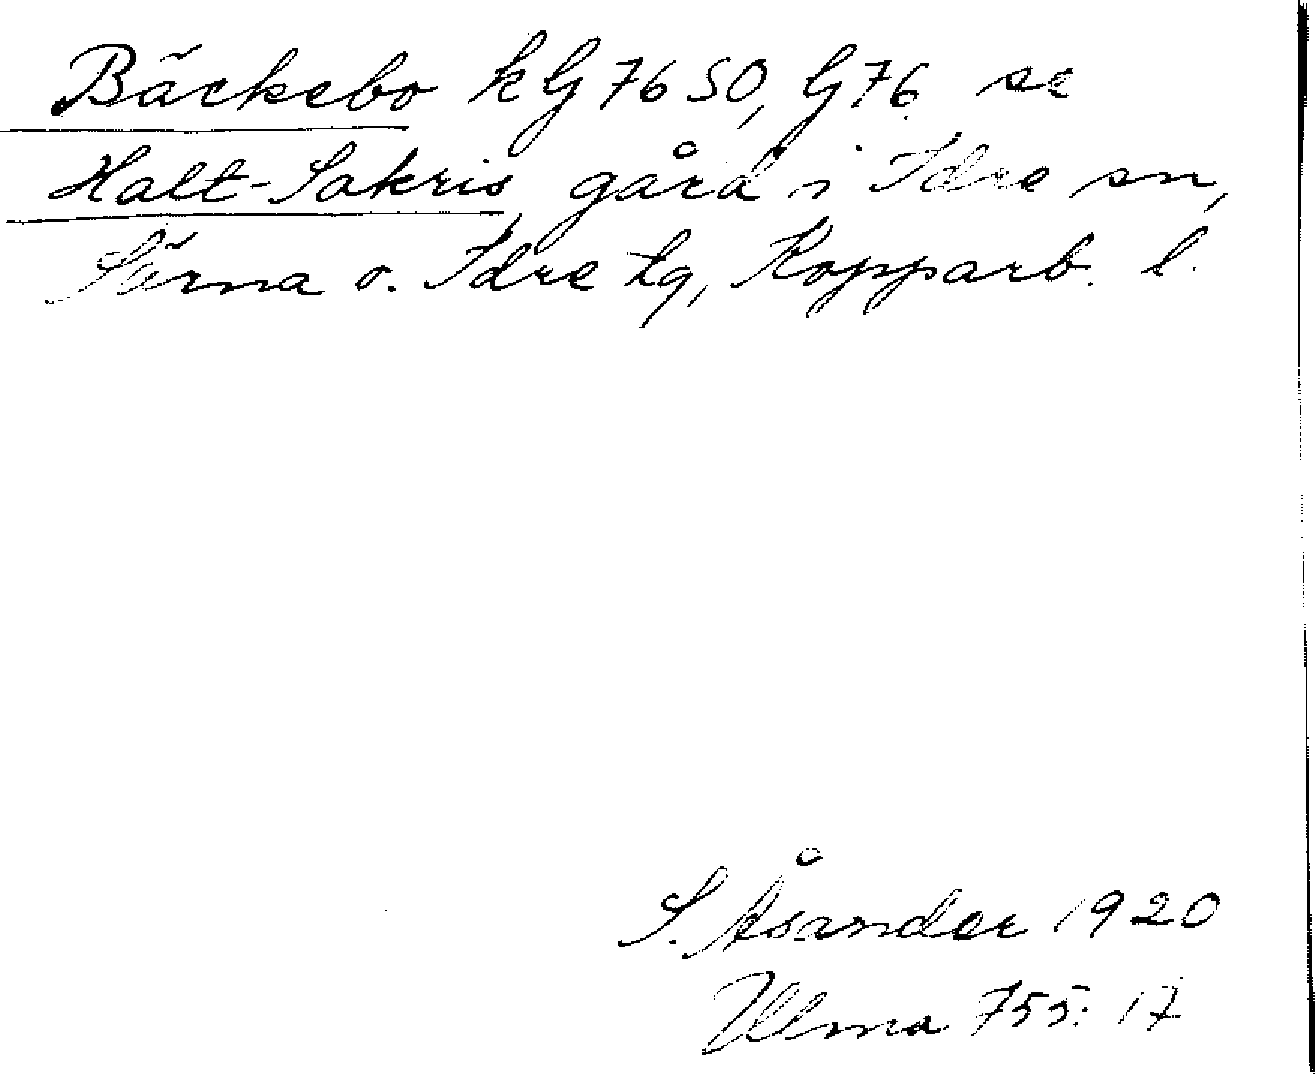 Bäckebo k G 76 SO, G 76 se
Halt-Sakris, gård i Idre sn,
Särna o. Idre tg, Kopparb. l.
S. Åsander 1920
Ulma 755:17